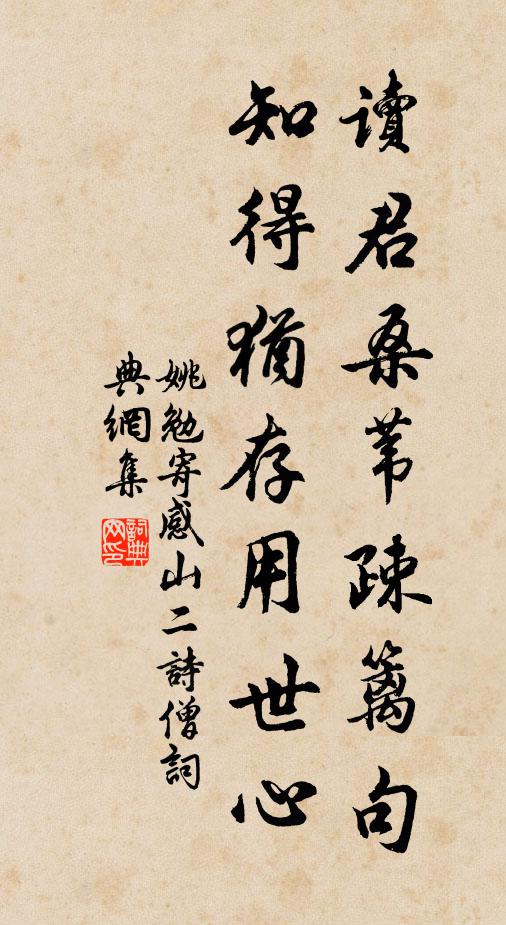 讀君桑苇疎篱句
知得猶存用世心
姚勉寄感山二詩僧詞
典網集
詞典网印